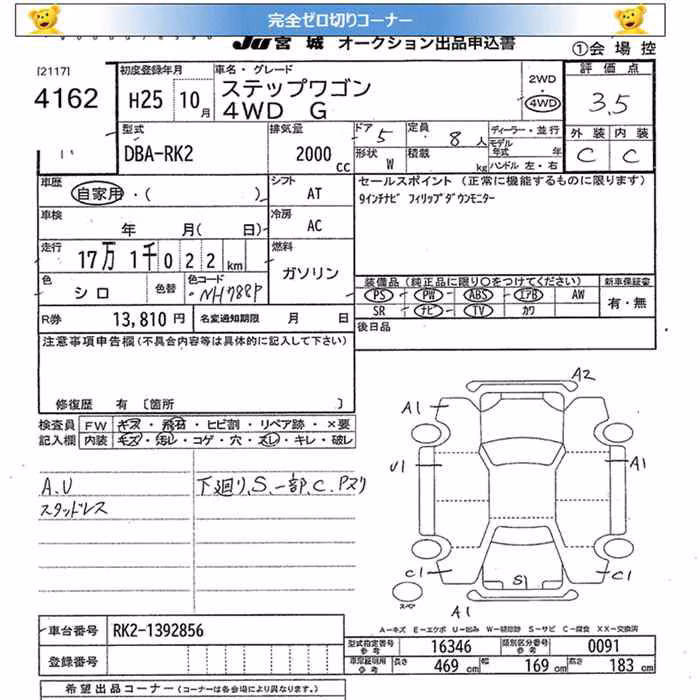 完全ゼロ切りコーナー
JU 宮城 オークション出品申込書
①会場控
[2117]
4162
初度登録年月
H25 10月
車名・グレード
ステップワゴン
4WD G
2WD
・
4WD
評価点
3.5
外装 内装
C C
型式
DBA-RK2
排気量
2000 cc
ドア 5
定員 8 人
形状 W
積載 kg
ディーラー・並行
モデル年式 年
ハンドル 左・右
車歴
自家用・( )
シフト
AT
車検
年 月( 日)
冷房
AC
走行
17万1千022 km
燃料
ガソリン
色
シロ
色替
色コード
NH788P
R券 13,810 円
名変通知期限 月 日
セールスポイント (正常に機能するものに限ります)
9インチナビ フィリップダウンモニター
装備品 (純正品に限り○をつけてください)
PS PW ABS エアB AW
SR ナビ TV カワ
新車保証書
有・無
後日品
注意事項申告欄(不具合内容等は具体的に記入して下さい)
修復歴 有 〔箇所 〕
検査員記入欄
FW キズ・飛石・ヒビ割・リペア跡・×要
内装 キズ・汚レ・コゲ・穴・スレ・キレ・破レ
A.U
スタッドレス
下廻り、S、一部、C、Pヌリ
A2
A1
U1
A1
C1
S1
C1
A1
スペア
A-キズ E-エクボ U-凹み W-補修跡 S-サビ C-腐食 XX-交換済
車台番号 RK2-1392856
登録番号
型式指定番号 参考 16346
類別区分番号 参考 0091
車庫証明用 参考 長さ 469 cm 幅 169 cm 高さ 183 cm
希望出品コーナー (コーナーは各会場により異なります。)